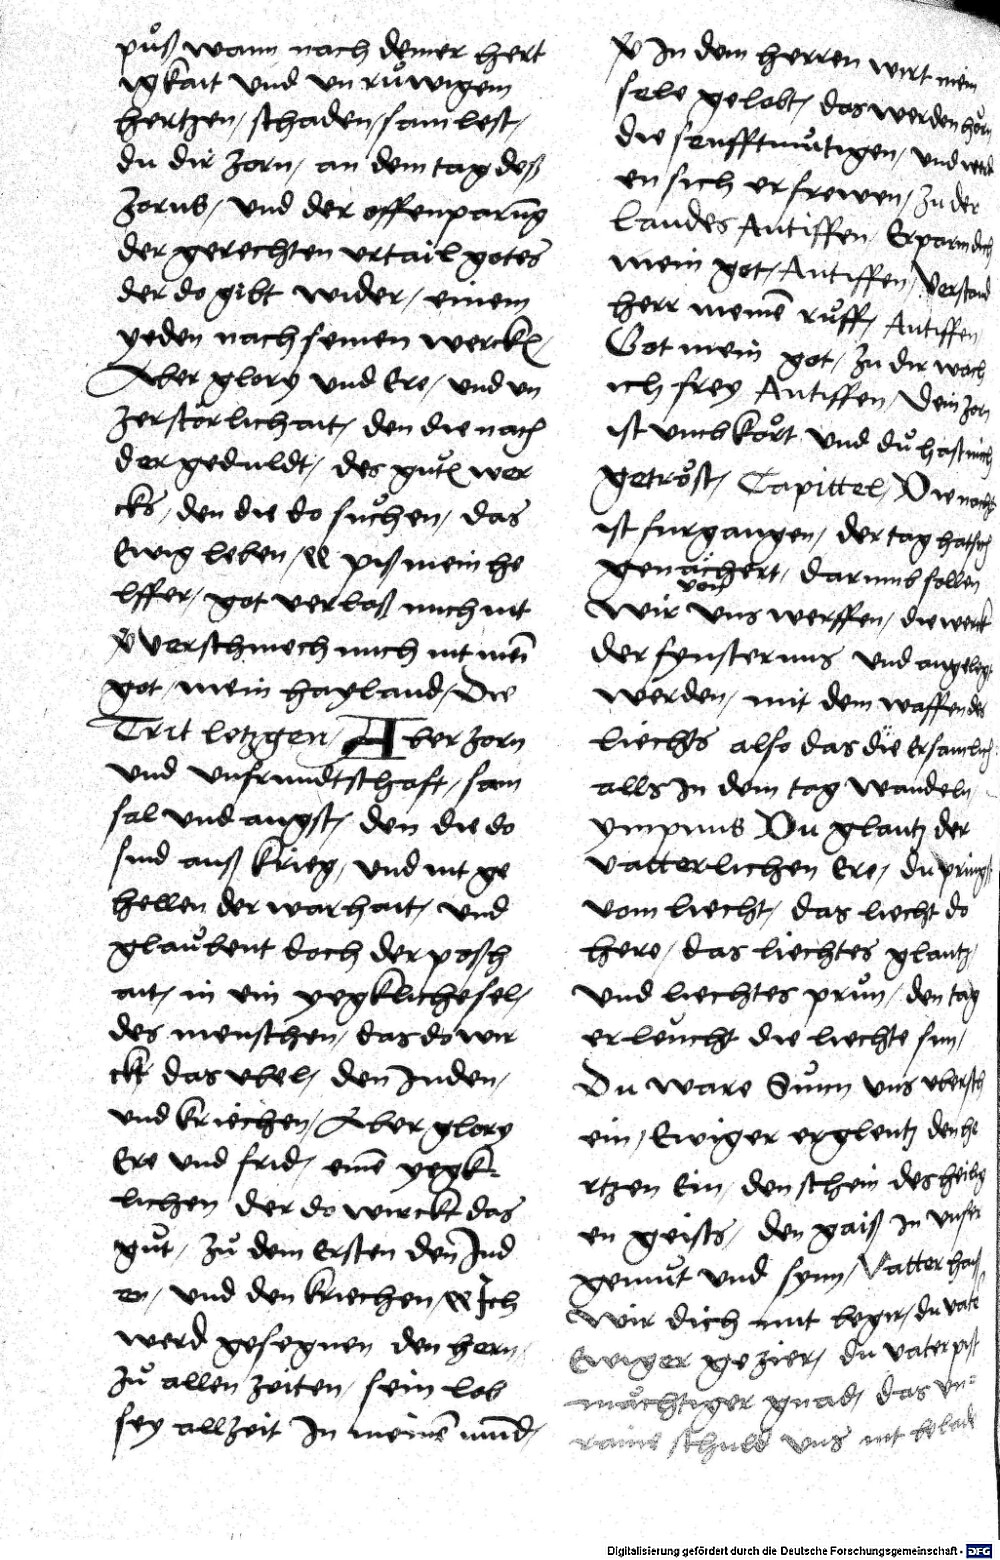 půß wann nach deiner hert
igkait vnd vn růwigem
hertzen / schaden / samlest /
du dir zorn / an dem tag deß
zorns / vnd der offenparūg
der gerechten vrtail gotes
der do gibt wider / einem
yeden nach seinen werckn /
Aber glory vnd Ere / vnd vn
zerstörlichait / den die nach
der geduldt / des gutn wer
cks / den die do sůchen / das
Ewig leben / R piß mein he
lffer / got verlaß mich nit
V verschmech mich nit mein
got / mein hayland / Die
Trit letzgen / Aber zorn
vnd vnfrundtschaft / sam
sal vnd angst / den die do
sind auß krieg / vnd nit ge
hellen der warhait / vnd
glaůbent doch der posh
ait / in ein yegkliche sel /
des menschen / das do wir
ckt das vbel / den Juden /
vnd kriechen / Aber glory
Ere vnd frid / einē yegk-
lichen der do wirckt das
gůt / zů dem Ersten den Jud
en / vnd den kriechen / R Ich
werd gesegnen den hern /
zů allen zeiten / sein lob
sey allzeit In meinē mund /
V In dem herren wirt mein
sele gelobt / das werden hörn
die senfftmůtigen / vnd werd
en sich erfrewen / Zu der
Laudes Antiffen / Erparm dich
mein got / Antiffen / Verstand
herr meinē růff / Antiffen
Got mein got / zu dir wach
ich frey Antiffen / Dein zorn
ist vmbkört vnd dů hast mich
getröst / Capittel / Die nacht
ist furgangen / der tag hat sich
genächert / darumb sollen
von
wir vns werffen / die werck
der fynsternus vnd angelegt
werden / mit dem waffen des
liechts also das die Ersamlich
alls In dem tag wandeln
ympnus Du glantz der
vatterlichen Ere / du pringst
vom liecht / das liecht do
here / das liechtes glantz /
vnd liechtes průn / den tag
erleůcht die liechte sun /
Du ware Sůnn vns vbersch
ein / Ewiger erglentz den he
rtzen Ein / den schein des heilig
en geists / den gaiß In vnser
gemůt vnd synn / Vatter haiß
wir dich mit begir / du vater
Ewiger gezier / du vater pist
mächtiger gnad / das vn-
raine schuld vns nit belade
Digitalisierung gefördert durch die Deutsche Forschungsgemeinschaft - DFG